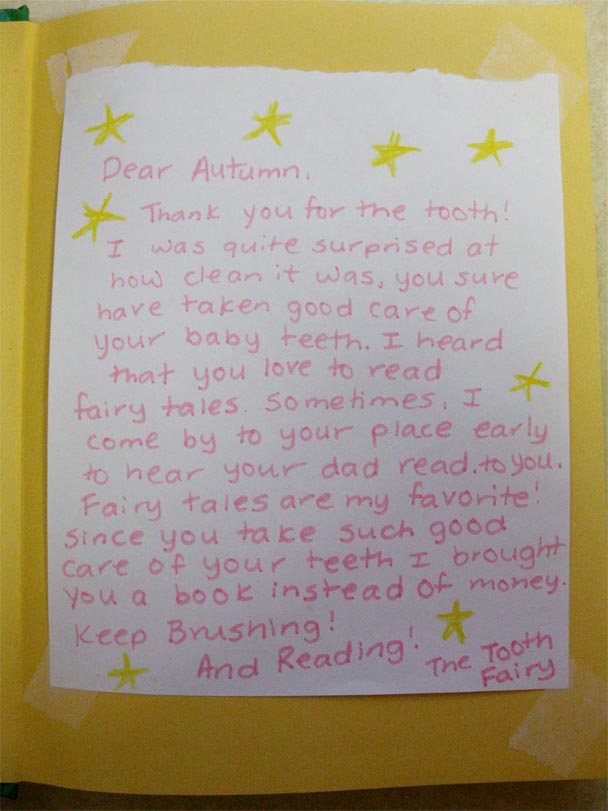 Dear Autumn,
Thank you for the tooth!
I was quite surprised at
how clean it was, you sure
have taken good care of
your baby teeth. I heard
that you love to read
fairy tales. Sometimes, I
come by to your place early
to hear your dad read to you.
Fairy tales are my favorite!
Since you take such good
care of your teeth I brought
you a book instead of money.
Keep Brushing!
And Reading!
The Tooth
Fairy